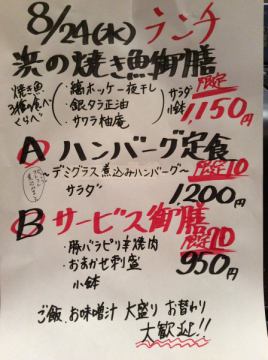 8/24(水) ランチ
浜の焼き魚御膳
焼き魚
3種の食べ
くらべ
・縞ホッケ一夜干し
・銀タラ正油
・サワラ柚庵
サラダ
小鉢
限定
1,150円
A ハンバーグ定食
～デミグラス煮込みハンバーグ～
限定10
サラダ
1,200円
B サービス御膳
限定10
・豚バラピリ辛焼肉
・おまかせ刺盛
小鉢
950円
ご飯、お味噌汁 大盛り お替わり
大歓迎!!